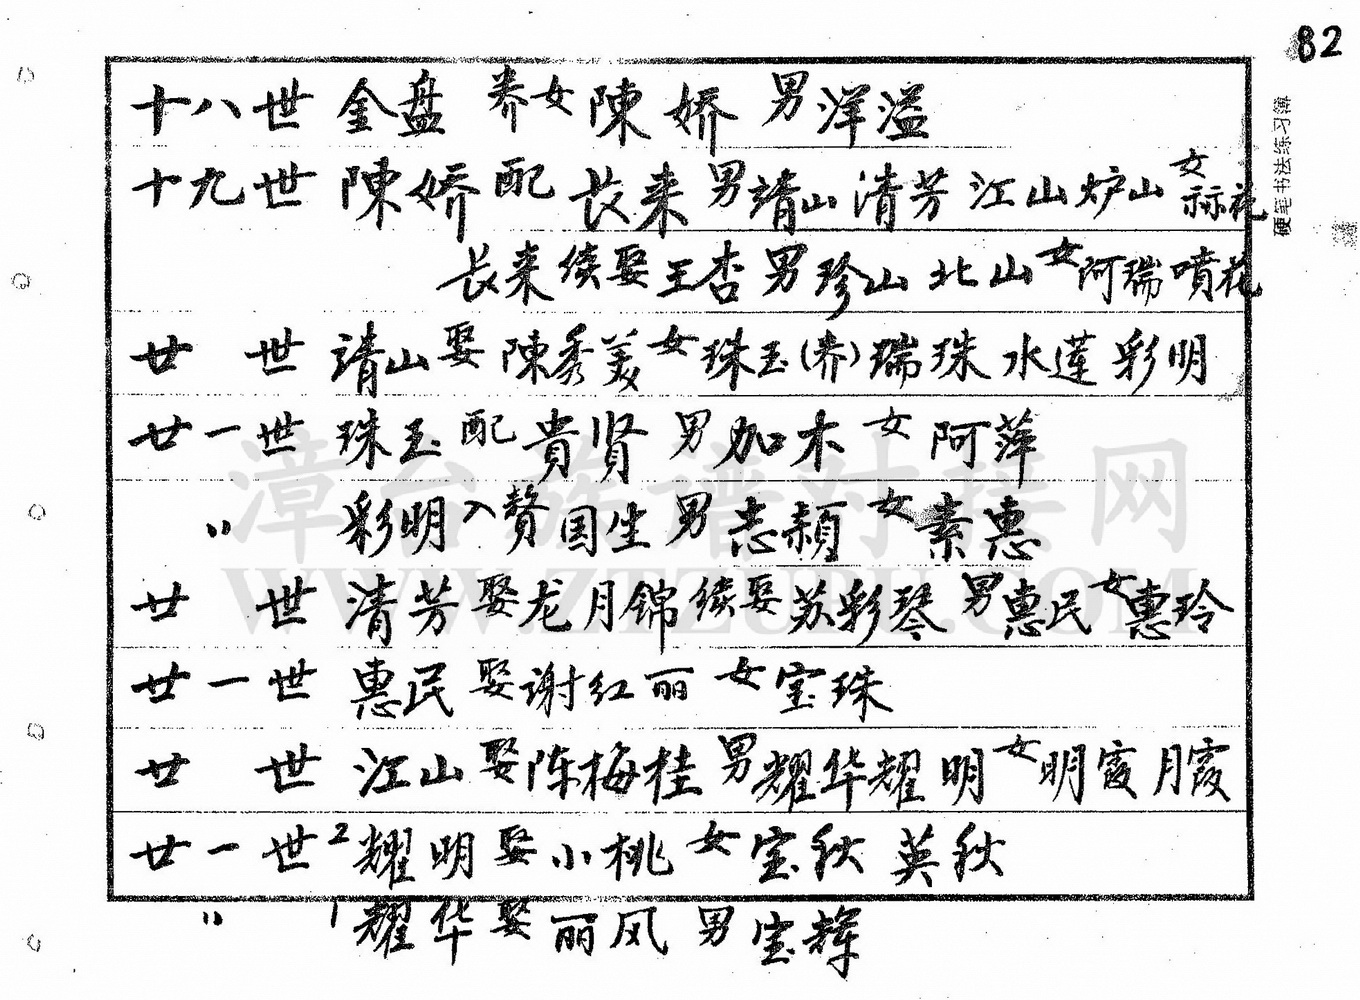 82
硬笔书法练习簿
十八世 金盘 养女 陳娇 男 洋溢
十九世 陳娇 配 长来 男 靖山 清芳 江山 炉山 女 花
长来 续娶 王杏 男 珍山 北山 女 阿瑞 噴花
廿世 靖山 娶 陳秀美 女 珠玉(养) 瑞珠 水莲 彩明
廿一世 珠玉 配 貴贤 男 加木 女 阿萍
〃 彩明 入赘 国生 男 志颖 女 素惠
廿世 清芳 娶 龙月锦 续娶 苏彩琴 男 惠民 女 惠玲
廿一世 惠民 娶 谢红丽 女 宝珠
廿世 江山 娶 陈梅桂 男 耀华 耀明 女 明霞 月霞
廿一世 2 耀明 娶 小桃 女 宝秋 英秋
〃 1 耀华 娶 丽凤 男 宝辉
漳台族谱对接网
WWW.ZTZUPU.COM